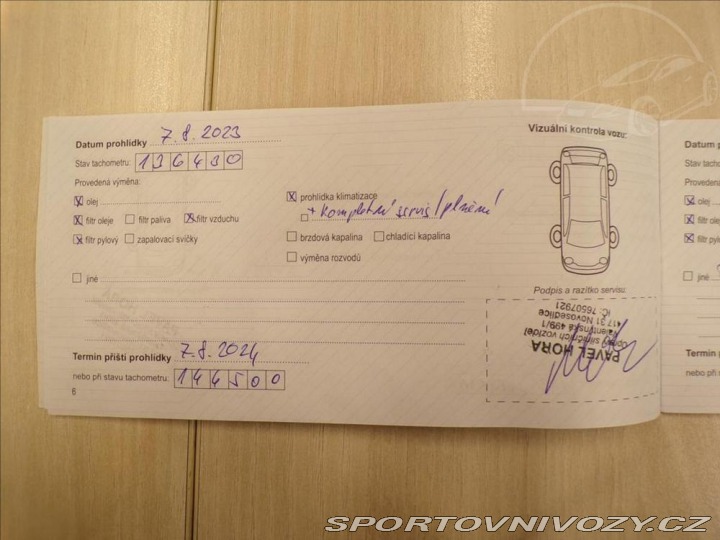 Datum prohlídky 7.8.2023
Stav tachometru: 136430
Provedená výměna:
olej
filtr oleje filtr paliva filtr vzduchu
filtr pylový zapalovací svíčky
jiné
prohlídka klimatizace
+ kompletní servis/plnění
brzdová kapalina chladící kapalina
výměna rozvodů
Termín příští prohlídky 7.8.2024
nebo při stavu tachometru: 144500
6
Vizuální kontrola vozu:
Podpis a razítko servisu:
PAVEL HORA
Opravy silničních vozidel
Valentinská 499/1
417 31 Novosedlice
IČ: 76507921
Datum p
Stav tacho
Provedená
olej
filtr oleje
filtr pylový
jiné
Termín p
nebo při s
SPORTOVNIVOZY.CZ